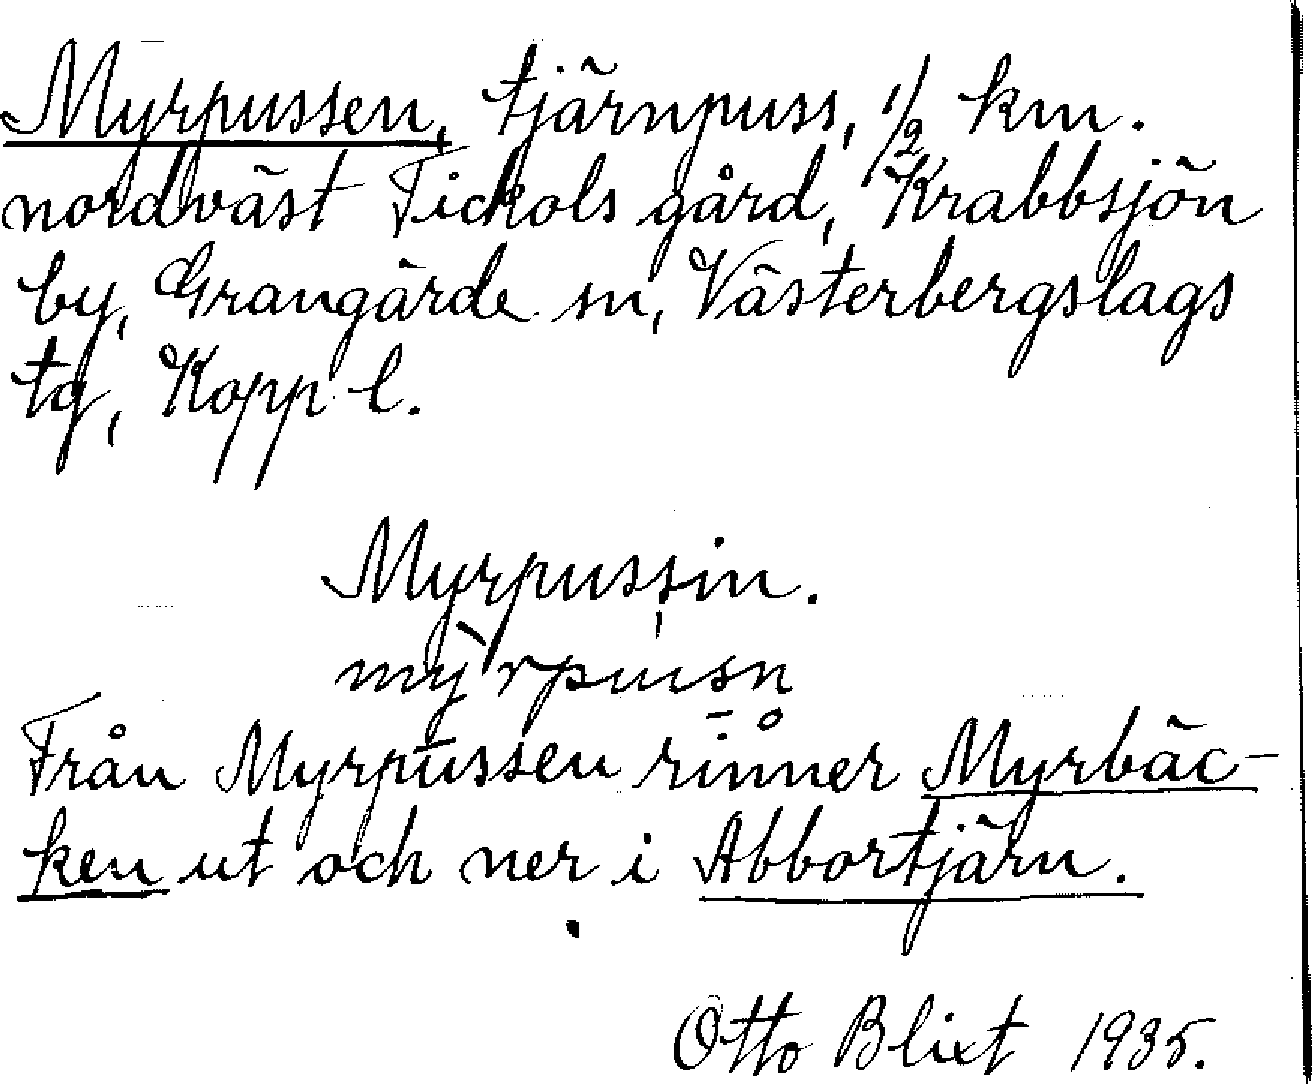 Myrpussen, tjärnpuss, 1/2 km.
nordväst Fickols gård, Krabbsjön
by, Grangärde sn, Västerbergslags
tg, Kopp. l.
Myrpussin.
Från Myrpussen rinner Myrbäc-
ken ut och ner i Abbortjärn.
Otto Blixt 1935.